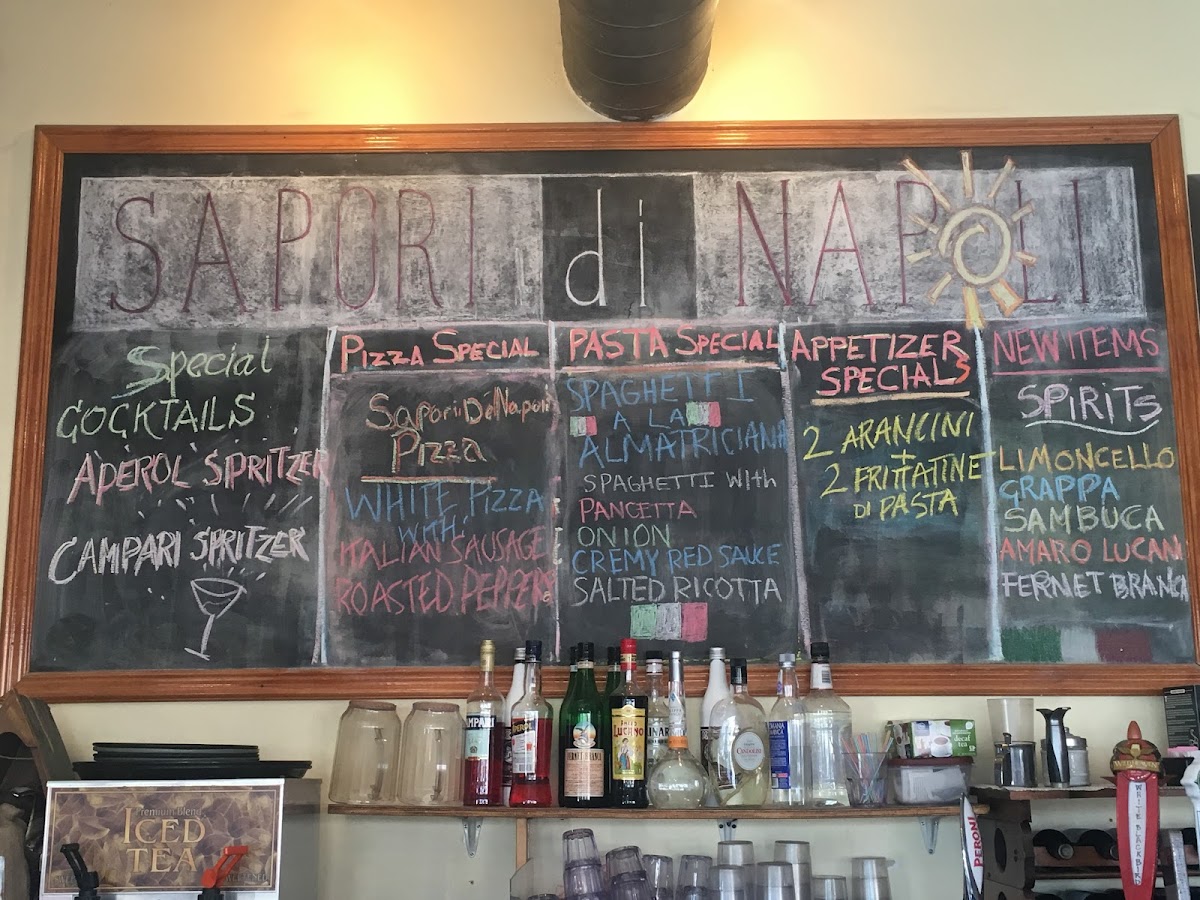 SAPORI di NAPOLI
Special
COCKTAILS
APEROL SPRITZER
CAMPARI SPRITZER
PIZZA SPECIAL
Sapori De Napoli
Pizza
WHITE PIZZA
WITH
ITALIAN SAUSAGE
ROASTED PEPPERS
PASTA SPECIAL
SPAGHETTI
A LA
ALMATRICIANA
SPAGHETTI WITH
PANCETTA
ONION
CREMY RED SAUCE
SALTED RICOTTA
APPETIZER
SPECIALS
2 ARANCINI
+
2 FRITTATINE
DI PASTA
NEW ITEMS
SPIRITS
LIMONCELLO
GRAPPA
SAMBUCA
AMARO LUCANO
FERNET BRANCA
CAMPARI
APEROL
FERNET-BRANCA
LUCANO
decaf
tea
Premium Blend
ICED
TEA
PERONI
WHITE BLACKBIRD